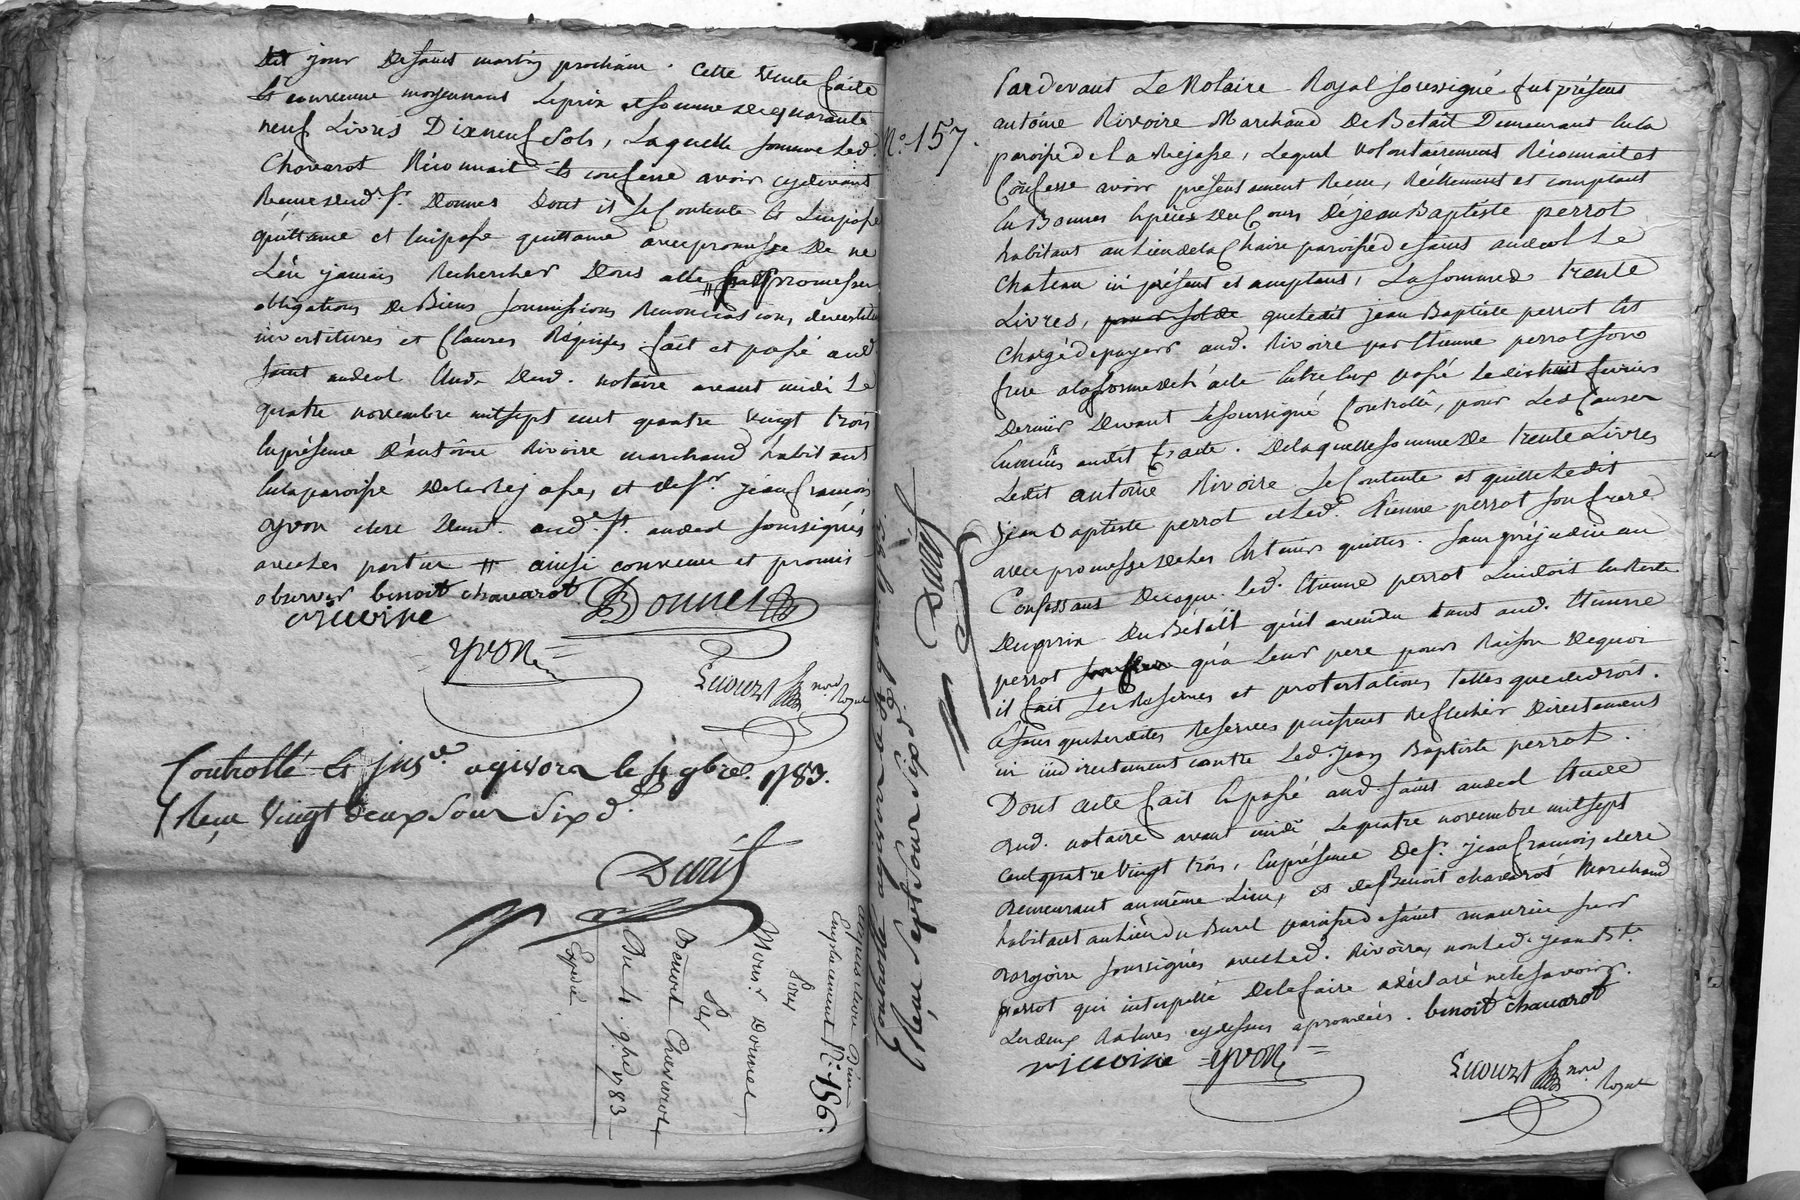 jour de saint martin prochain. Cette vente faite
et convenue moyennant le prix et somme de quarante
neuf Livres Dixneuf sols, Laquelle somme led.
Chovarot Réconnait et confesse avoir cydevant
Reçue dud. sr. Donnet Dont il se Contente et
quittance et lui passe quittance avec promesse De ne
jamais Rechercher Dont acte promesses
obligations De Biens soumissions Renonciations, devestitures
investitures et Clauses Réquises fait et passé aud.
saint andeol Etude Dud. notaire avant midi Le
quatre novembre mil sept cent quatre vingt trois
En présence D'antoine Rivoire marchand habitant
En la paroisse de la Rejasse, et de sr. jean francois
yvon clerc Demt. aud. st. andeol soussignés
avec les parties ainsi convenu et promis
observer benoit chavarot Donnet
rivoire
yvon
notre Royal
Controllé et jnse. a givors le 4 9bre. 1783.
Reçu Vingt deux sous six d.
N.° 156.
Pour sr. Donnet
Sur
Benoit Chavarot
Du 4. 9bre 1783
Expédié
N.° 157.
Controllé a givors le 4 9bre 1783.
Reçu sept sous six d.
Pardevant Le Notaire Royal soussigné fut présent
antoine Rivoire Marchand De Betail Demeurant en la
paroisse de La Rejasse, Lequel volontairement Réconnait et
Confesse avoir présentament Reçu, Réellement et comptant
En Bonnes Espèces du Cours De jean Baptiste perrot
habitant au Lieu de la Chaire paroisse de saint andeol Le
Chateau ici présent et acceptant, La somme de trente
Livres, pour solde que ledit jean Baptiste perrot Est
Chargé de payer aud. Rivoire par Etienne perrot son
frere a la forme de l'acte Entre Eux passé Le dix huit fevrier
Dernier Devant Le soussigné Controllé, pour Les Causes
Enoncées audit acte. De laquelle somme De trente Livres
Ledit antoine Rivoire se Contente et quitte Ledit
jean Baptiste perrot et Led. Etienne perrot son frere
avec promesse de les En tenir quittes. sans préjudice au
Confessant De ce que led. Etienne perrot Lui doit En Reste
Du prix Du Bétail qu'il a vendu tant aud. Etienne
perrot qu'a Leur pere pour Raison De quoi
il fait Les Réserves et protestations telles que de droit.
sans que lesdites Reserves puissent Reflechir Directement
ni indirectement contre Led. Jean Baptiste perrot.
Dont acte fait Et passé aud. saint andeol Etude
Dud. notaire avant midi Le quatre novembre mil sept
cent quatre Vingt trois, En présence De sr. jean francois clerc
Demeurant au même Lieu, et de Benoit chavarot Marchand
habitant au Lieu du Burel paroisse de saint maurice sur
Dargoire soussignés avec Led. Rivoire, non Led. jean Bte.
perrot qui interpellé De le faire a déclaré ne le savoir.
Les deux Ratures cy dessus approuvées. benoit chavarot
rivoire yvon
notre Royal